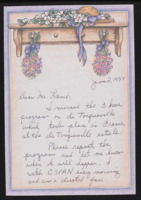 June 2, 1997
Dear Mr. Lamb,
I missed the 3 hour
program on de Tocqueville
which took place in France
at the de Tocqueville estate.
Please repeat the
program and let me know
when it will appear. I
watch C-SPAN every morning
and am a devoted fan.